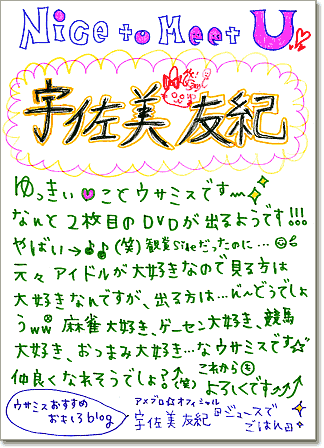 Nice to Meet U
宇佐美友紀
ゆっきぃ♥ことウサミスです〜
なんと2枚目のDVDが出るようです!!!
やばい→♪♪(笑)観賞Sideだったのに…
元々アイドルが大好きなので見る方は
大好きなんですが、出る方は…ん〜どうでしょ
うww 麻雀大好き、ゲーセン大好き、競馬
大好き、おつまみ大好き…なウサミスです☆
仲良くなれそうでしょ?↑(笑) これからも
よろしくです↑↑↑
ウサミスおすすめ
おもしろblog
アメブロ☆オフィシャル
宇佐美友紀『ジュースで
ごはん』